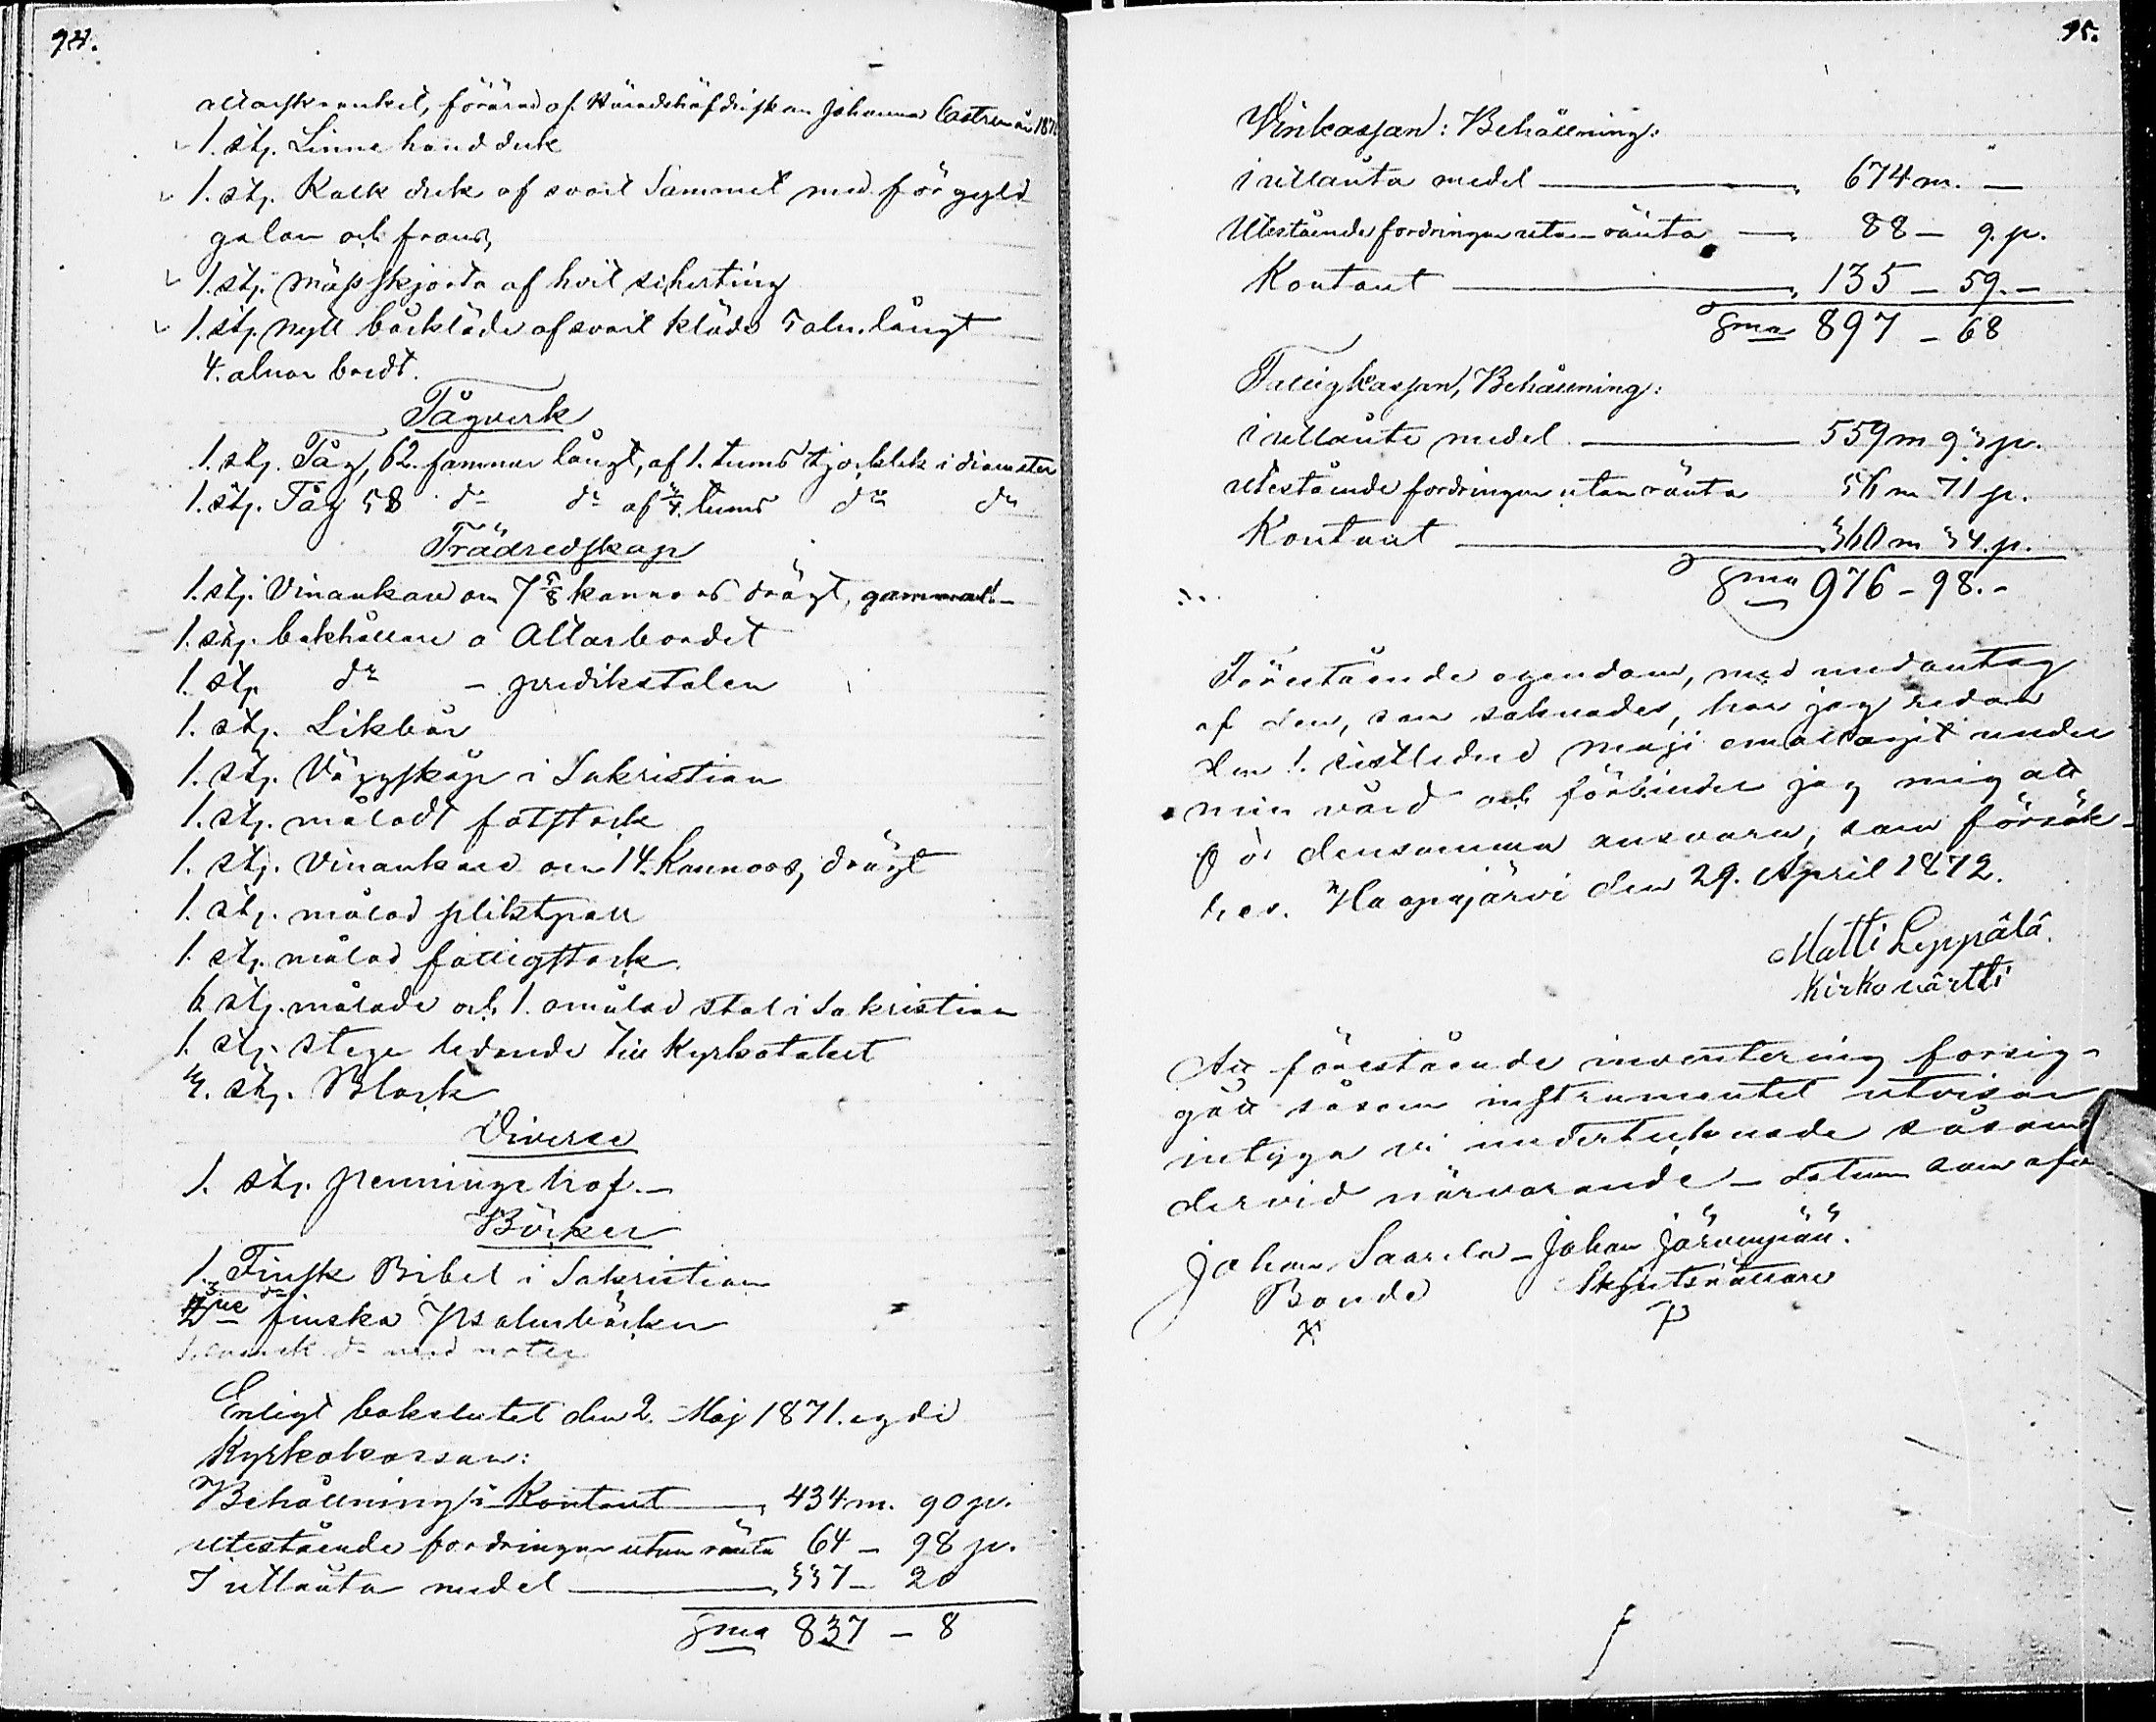 94.
altarskranket, förärad af Häradshöfdinskan Johanna Castren år 187
1. st. Linne handduk
1. st. Kalk duk af svart Sammet med förgyld
galon och frans,
1. st. mässskjorta af hvit sherting
1. st. nytt bårkläde af svart kläde 5 aln. långt
4. alnar bredt.
Tågverk
1. st. Tåg, 62. famnar långt, af 1. tums tjocklek i diameter
1. st. Tåg 58 do do af 3/4 tums do do
Trädredskap
1. st. Vinankare om 7 5/8 kannors drägt, gammal. -
1. st. bokhållare å Altarbordet
1. st. do - predikstolen
1. st. Likbår
1. st. Väggskåp i Sakristian
1. st. måladt fotstock
1. st. Vinankare om 14. Kannors, drägt
1. st. målad pliktpall
1. st. målad fattigstock
6 st. målade och 1. omålad stol i Sakristian
1. st. stege ledande till Kyrkotaket
4. st. Block
Diverse
1. st. penningehåf. -
Böcker
1. Finsk Bibel i Sakristian
finska Psalmböcker
1. svensk do med noter
Enligt bokslutet den 2. Maj 1871. egde
Kyrkokassan:
Behållning i Kontant 434 m. 90 p.
utestående fordringar utan ränta 64 - 98 p.
I utlånta medel 337 - 20
Sma 837 - 8
95.
Vinkassan: Behållning:
i utlånta medel 674 m. -
Utestående fordringar utan ränta 88 - 9. p.
Kontant 135 - 59. -
Sma 897 - 68
Fattigkassan, Behållning:
i utlånte medel 559 m 93 p.
utestående fordringar utan ränta 56 m 71 p.
Kontant 360 m 34. p.
Sma 976 - 98. -
Förestående egendom, med undantag
af den, som saknades, har jag redan
den 1. sistledne Maji emottagit under
min vård och förbinder jag mig att
för densamma ansvara, som försäk-
res. Haapajärvi den 29. April 1872.
Matti Leppälä.
Kirkovärtti
Att förestående inventering forsig-
gått såsom instrumentet utvisar
intyga vi undertecknade såsom
dervid närvarande - datum som ofvan
Johan Saarela - Johan Järvenpää.
Bonde Skjutsrättare